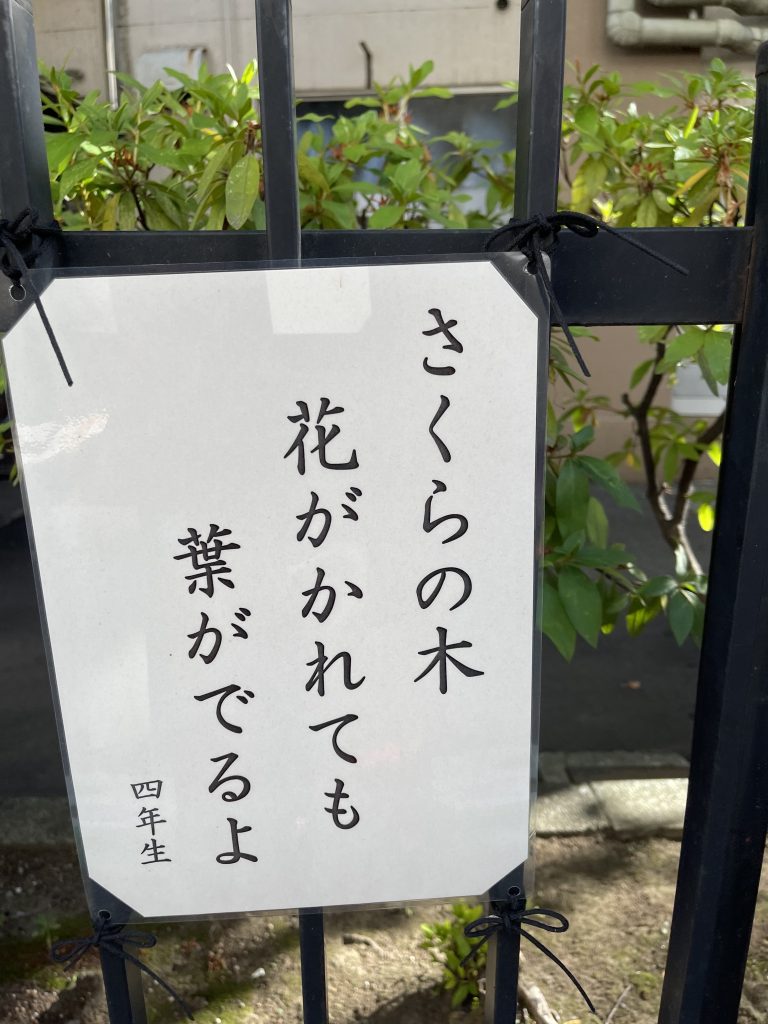 さくらの木
花がかれても
葉がでるよ
四年生